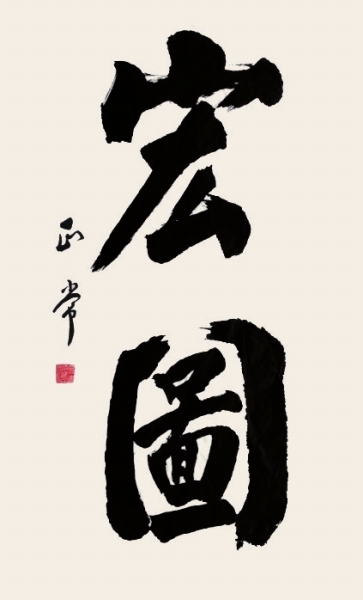 宏圖
正常